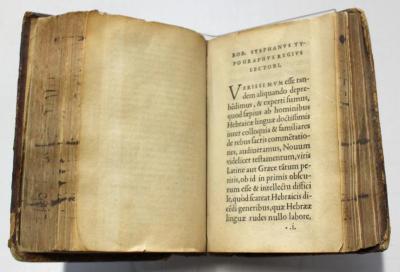 ROB. STEPHANVS TY-
POGRAPHVS REGIVS
LECTORI.
VERISSIMVM esse tan-
dem aliquando depre-
hēdimus, & experti sumus,
quod sæpius ab hominibus
Hebraicæ linguæ doctissimis
inter colloquia & familiares
de rebus sacris commētationes,
audiueramus, Nouum
videlicet testamentum, viris
Latine aut Græce tātum pe-
ritis, ob id in primis obscu-
rum esse & intellectu diffici
le, quòd scateat Hebraicis di-
cēdi generibus, quæ Hebrææ
linguæ rudes nullo labore,
*.i.